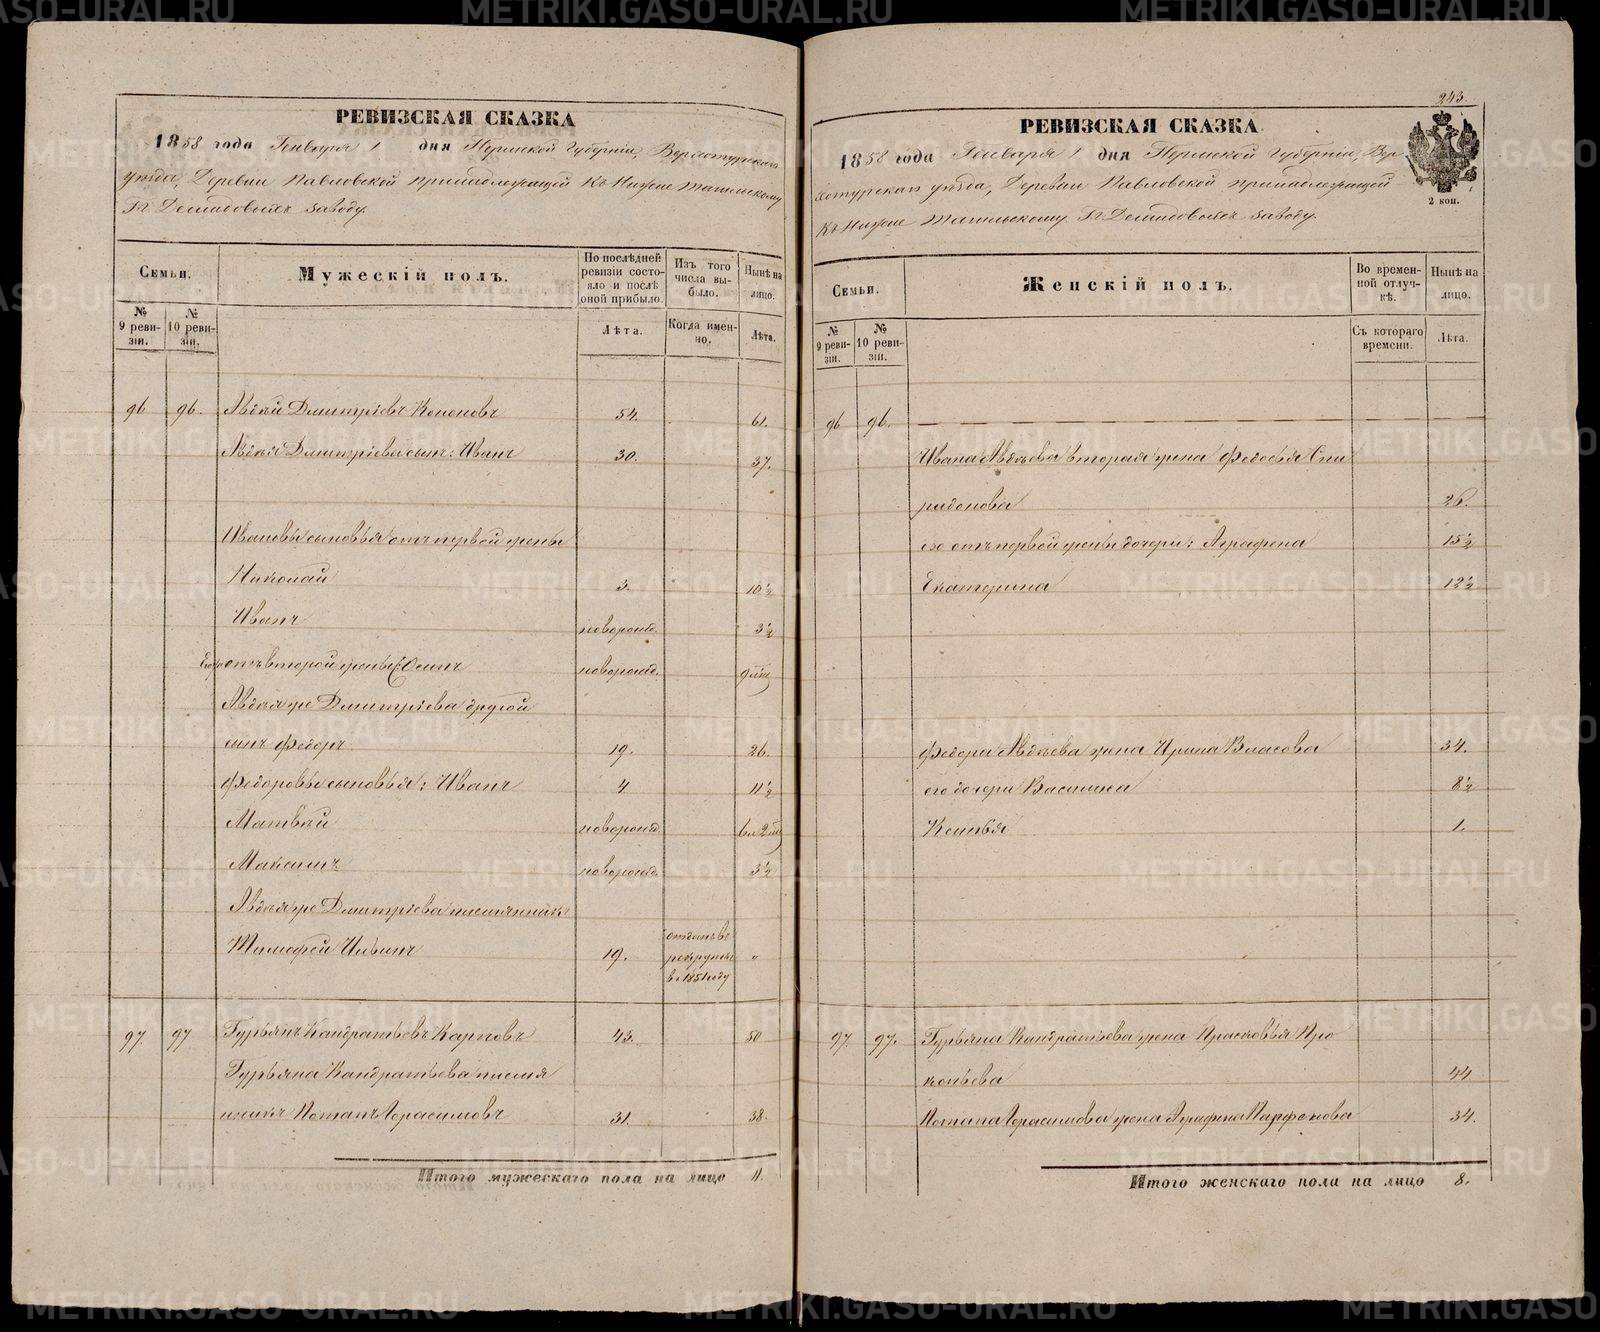 РЕВИЗСКАЯ СКАЗКА
1858 года Генваря 1 дня Пермской Губернiи, Верхотурскаго
уѣзда, Деревни Павловской принадлежащей къ Нижне Тагильскому
Гг. Демидовыхъ заводу.
Семьи.
Мужескiй полъ.
По послѣдней ревизiи состояло и послѣ оной прибыло.
Изъ того числа выбыло.
Нынѣ на лицо.
№ 9 ревизiи.
№ 10 ревизiи.
Лѣта.
Когда именно.
Лѣта.
96 96. Авдѣй Дмитрiевъ Кононовъ 54. 61.
Авдѣя Дмитрiева сынъ: Иванъ 30. 37.
Ивановы сыновья отъ первой жены
Николай 3. 10½
Иванъ новорожд. 3½
Его же отъ второй жены Осипъ новорожд. 9 м
Авдѣя же Дмитрiева другой
сынъ Федоръ 19. 26.
Федоровы сыновья: Иванъ 4 11½
Матвѣй новорожд. 6 л 2 м
Максимъ новорожд. 3½
Авдѣя же Дмитрiева племянникъ
Тимофей Ильинъ 19. отданъ въ рекруты въ 1851 году "
97. 97 Гурьянъ Кандратьевъ Карповъ 43. 50
Гурьяна Кандратьева племя
нникъ Потапъ Герасимовъ 31. 38.
Итого мужескаго пола на лицо 11.
243.
РЕВИЗСКАЯ СКАЗКА
1858 года Генваря 1 дня Пермской Губернiи, Вер
хотурскаго уѣзда, Деревни Павловской принадлежащей
къ Нижне Тагильскому Гг. Демидовыхъ заводу.
2 коп.
Семьи.
Женскiй полъ.
Во временной отлучкѣ.
Нынѣ на лицо.
№ 9 ревизiи.
№ 10 ревизiи.
Съ котораго времени.
Лѣта.
96 96.
Ивана Авдѣева вторая жена Федосья Спи
ридонова 26.
его отъ первой жены дочери: Аграфена 15½
Екатерина 12½
Федора Авдѣева жена Ирина Власова 34.
его дочери Василиса 8½
Ксенья 1.
97. 97. Гурьяна Кандратьева жена Прасковья Про
копьева 44
Потапа Герасимова жена Аграфена Парфенова 34.
Итого женскаго пола на лицо 8.
METRIKI.GASO-URAL.RU